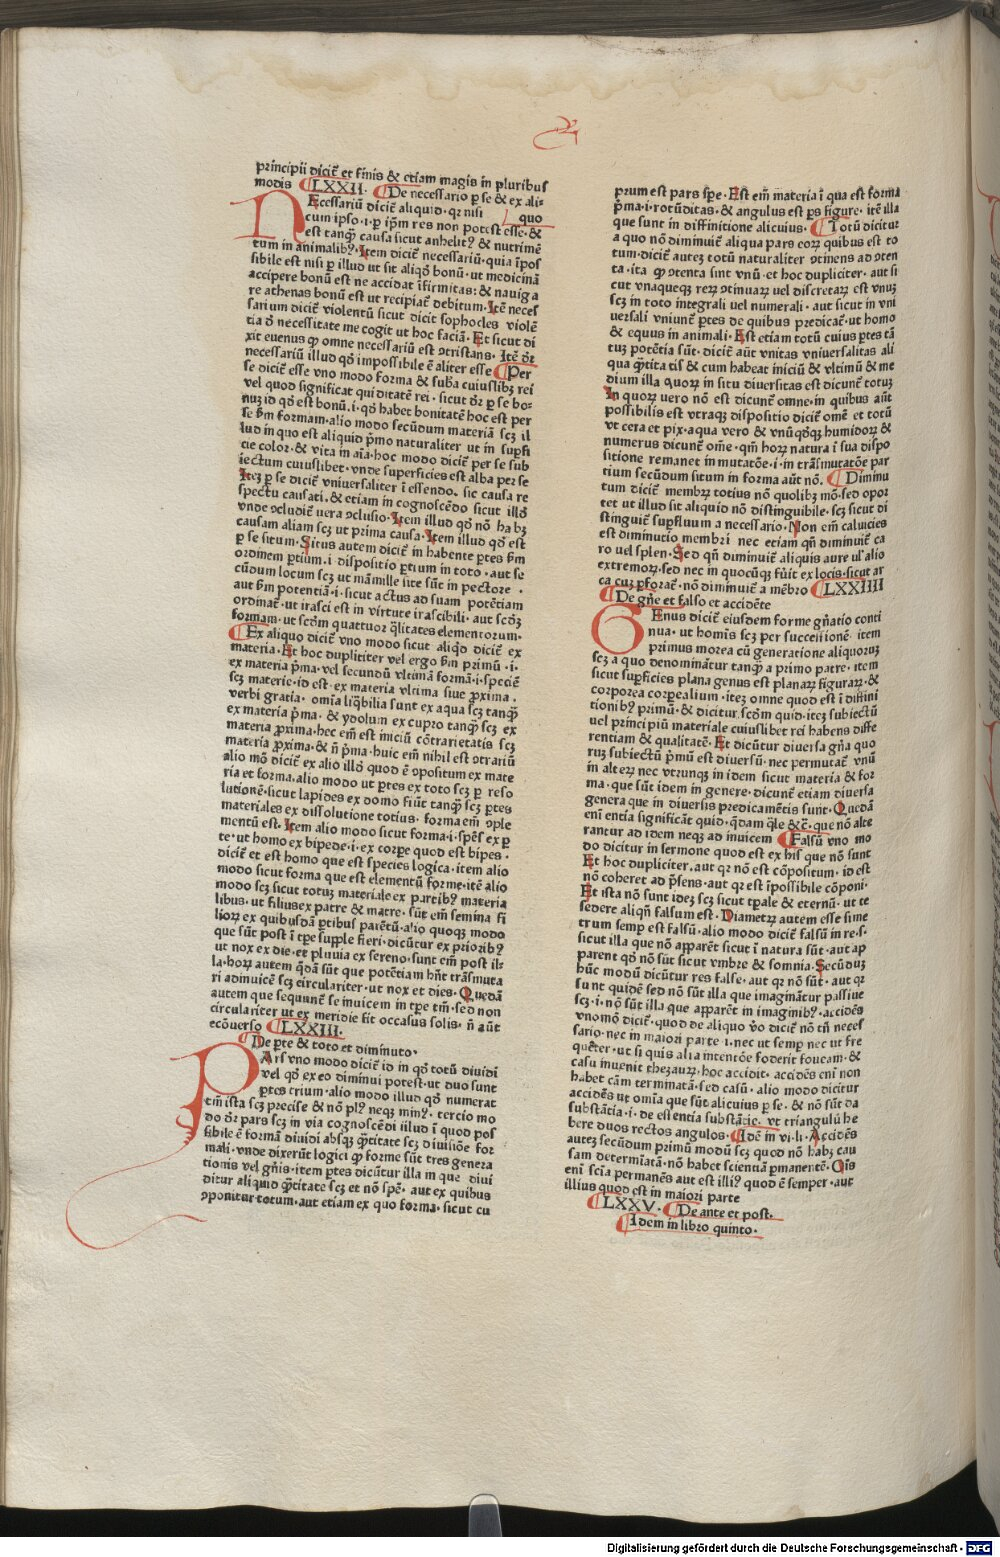 principii dicit᷑ et finis & etiam magis in pluribus
modis ¶LXXII. ¶De necessario p̱ se & ex ali⸗
quo
NEcessariũ dicit᷑ aliquid· qr nisi
cum ipso .i. p̱ ip̃m res non potest esse· &
est tanq̃ causa sicut anhelit₉ & nutrimẽ
tum in animalib₉· Item dicit᷑ necessariũ· quia ĩpos
sibile est nisi p̱ illud ut sit aliqđ bonũ· ut medicinã
accipere bonũ est ne accidat ĩfirmitas: & nauiga
re athenas bonũ est ut recipiat᷑ debitum· Itẽ neces
sarium dicit᷑ violentũ sicut dicit sophocles violẽ
tia đ necessitate me cogit ut hoc faciã· Et sicut di
xit euenus ꝙ omne necessariũ est ꝯtristans· Itẽ đr
necessariũ illud qđ impossibile ẽ aliter esse ¶Per
se dicit᷑ esse vno modo forma & suƀa cuiuslibꝫ rei
vel quod significat qui ditatẽ rei· sicut đr p̱ se bo⸗
nuꝫ id qđ est bonũ .i. qđ habet bonitatẽ hoc est per
se ẜm formam· alio modo secũdum materiã scꝫ il
lud in quo est aliquid p̃mo naturaliter ut in suꝑfi
cie color· & vita in aĩa· hoc modo dicit᷑ per se sub
iectum cuiuslibet· vnde superficies est alba per se
Iteꝫ p̱ se dicit᷑ vniuersaliter ĩ essendo· sic causa re
spectu causati· & etiam in cognoscẽdo sicut illđ
vnde ꝯcludit᷑ vera ꝯclusio· Item illud qđ nõ habꝫ
causam aliam scꝫ ut prima causa· Item illud qđ est
p̱ se situm· Situs autem dicit᷑ in habente p̱tes ẜm
ordinem p̱tium .i. dispositio p̱tium in toto· aut se
cũdum locum scꝫ ut mãmille site sũt in pectore·
aut ẜm potentiã .i. sicut actus ad suam potẽtiam
ordinat᷑· ut irasci est in virtute irascibili· aut scđꝫ
formam· ut scđm quattuor q̃litates elementorum·
¶Ex aliquo dicit᷑ vno modo sicut aliqđ dicit᷑ ex
materia· Et hoc dupliciter vel ergo ẜm primũ .i.
ex materia p̃ma· vel secundũ vltimã formã .i. speciẽ
scꝫ materie· id est· ex materia vltima siue ꝓxima·
verbi gratia· om̃ia liq̃bilia sunt ex aqua scꝫ tanq̃
ex materia p̃ma· & ydolum ex cupro tanq̃ scꝫ ex
materia ꝓxima· hec em̃ est iniciũ cõtrarietatis scꝫ
materia ꝓxima· & ñ p̃ma· huic em̃ nihil est ꝯtrariũ
alio mõ dicit᷑ ex alio illđ quod ẽ ꝯpositum ex mate
ria et forma· alio modo ut p̱tes ex toto scꝫ p̱ reso
lutionẽ· sicut lapides ex domo fiũt tanq̃ scꝫ p̱tes
materiales ex dissolutione totius· forma em̃ ꝯple
mentũ est· Item alio modo sicut forma .i. spẽs ex p̱
te· ut homo ex bipede .i. ex corꝑe quod est bipes·
dicit᷑ et est homo que est species logica· item alio
modo sicut forma que est elementũ forme· itẽ alio
modo scꝫ sicut totuꝫ materiale ex partib₉ materia
libus· ut filius ex patre & matre· sũt em̃ semina fi
lioꝝ ex quibusdã p̱tibus parẽtũ· alio quoqꝫ modo
que sũt post ĩ tꝑe suꝑple fieri· dicũtur ex priorib₉
ut nox ex die· et pluuia ex sereno· sunt em̃ post il⸗
la· hoꝝ autem q̃dã sũt que potẽtiam hñt trãsmuta
ri adinuicẽ scꝫ circulariter· ut nox et dies· Quedã
autem que sequunt᷑ se inuicem in tꝑe tm̃· sed non
circulariter ut ex meridie fit occasus solis· ñ aũt
ecõuerso ¶LXXIII.
¶De p̱te & toto et diminuto·
PArs vno modo dicit᷑ id in qđ totũ diuidi
vel qđ ex eo diminui potest· ut duo sunt
p̱tes trium· alio modo illud qđ numerat
tm̃ ista scꝫ precise & nõ pl₉ neqꝫ min₉· tercio mo
do đr pars scꝫ in via cognoscẽdi illud ĩ quod pos
sibile ẽ formã diuidi absqꝫ q̃titate scꝫ diuisiõe for
mali· vnde dixerũt logici ꝙ forme sũt tres genera
tionis vel gñis· item p̱tes dicũtur illa in que diui
ditur aliquid q̃titate scꝫ et nõ spẽ· aut ex quibus
ꝯponitur totum· aut etiam ex quo forma· sicut cu
prum est pars sp̃e· Est em̃ materia ĩ qua est forma
p̃ma .i. rotũditas· & angulus est p̱s figure· itẽ illa
que sunt in diffinitione alicuius· ¶Totũ dicitur
a quo nõ diminuit᷑ aliqua pars eoꝝ quibus est to
tum· dicit᷑ auteꝫ totũ naturaliter ꝯtinens ad ꝯten
ta· ita ꝙ ꝯtenta sint vnũ· et hoc dupliciter· aut si
cut vnaqueqꝫ reꝝ ꝯtinuaꝝ uel discretaꝝ est vnuꝫ
scꝫ in toto integrali uel numerali· aut sicut in vni
uersali vniunt᷑ p̱tes de quibus predicat᷑· ut homo
& equus in animali· Est etiam totũ cuius p̱tes tã
tuꝫ potẽtia sũt· dicit᷑ aũt vnitas vniuersalitas ali
qua q̃tita tis & cum habeat iniciũ & vltimũ & me
dium illa quoꝝ in situ diuersitas est dicunt᷑ totuꝫ
In quoꝝ uero nõ est dicunt᷑ omne· in quibus aũt
possibilis est vtraqꝫ dispositio dicit᷑ omẽ et totũ
vt cera et pix· aqua vero & vnũqđqꝫ humidoꝝ &
numerus dicunt᷑ om̃e· qm̃ hoꝝ natura ĩ sua dispo
sitione remanet in mutatõe .i. in trãsmutatõe par
tium secũdum situm in forma aũt nõ. ¶Diminu
tum dicit᷑ membꝝ totius nõ quolibꝫ mõ· sed opor
tet ut illud sit aliquid nõ distinguibile· scꝫ sicut di
stinguit᷑ suꝑfluum a necessario· Non em̃ caluicies
est diminutio membri nec etiam qñ diminuit᷑ ca
ro uel splen· Sed qñ diminuit᷑ aliquis aure ul' alio
extremoꝝ· sed nec in quocũqꝫ fũit ex locis· sicut ar
ca cuꝫ ꝑforat᷑· nõ diminuit᷑ a mẽbro ¶LXXIIII
¶De gñe et falso et accidẽte
GEnus dicit᷑ eiusdem forme gñatio conti
nua· ut homĩs scꝫ per successionẽ· item
primus morea cũ generatione aliquoruꝫ
scꝫ a quo denominãtur tanq̃ a primo patre· item
sicut suꝑficies plana genus est planaꝝ figuraꝝ· &
corporea corꝑealium· iteꝫ omne quod est ĩ diffini
tionib₉ primũ· & dicitur scđm quid· iteꝫ subiectũ
uel principiũ materiale cuiuslibet rei habens diffe
rentiam & qualitatẽ· Et dicũtur diuersa gña quo
ruꝫ subiectũ p̃mũ est diuersũ· nec permutat᷑ vnũ
in alteꝝ nec vtrunqꝫ in idem sicut materia & for
ma· que sũt idem in genere· dicunt᷑ etiam diuersa
genera que in diuersis predicamẽtis sunt· Quedã
enĩ entia significãt quid· q̃dam q̃le &c̃· que nõ alte
rantur ad idem neqꝫ ad inuicem ¶Falsũ vno mo
do dicitur in sermone quod est ex his que nõ sunt
Et hoc dupliciter· aut qr nõ est cõpositum· id est
nõ coheret ad p̃sens· aut qr est ĩpossibile cõponi·
Et ista nõ sunt ideꝫ scꝫ sicut tꝑale & eternũ· ut te
sedere aliqñ falsum est· Diametꝝ autem esse sime
trum semꝑ est falsũ· alio modo dicit᷑ falsũ in re .s.
sicut illa que nõ apparẽt sicut ĩ natura sũt· aut ap
parent qđ nõ sũt sicut vmbre & somnia· Secũduꝫ
hũc modũ dicũtur res false· aut qr nõ sũt· aut qr
sunt quidẽ sed nõ sũt illa que imaginãtur passiue
scꝫ .i. nõ sũt illa que apparẽt in imaginib₉· accidẽs
vnomõ dicit᷑· quod de aliquo v̊o dicit᷑ nõ tñ neces
sario· nec in maiori parte .i. nec ut semꝑ nec ut fre
quẽter· ut si quis alia intentõe foderit foueam· &
casu inuenit thezauꝝ· hoc accidit· accidẽs enĩ non
habet cãm terminatã· sed casũ· alio modo dicitur
accidẽs ut om̃ia que sũt alicuius p̱ se· & nõ sũt đa
substãtia .i. de essentia substãtie· vt triangulũ he
bere duos rectos angulos· ¶Idẽ in vi·li· Accidẽs
auteꝫ secũdum primũ modũ scꝫ quod nõ habꝫ cau
sam determĩatã· nõ habet scientiã ꝑmanentẽ· Oĩs
enĩ scĩa permanẽs aut est illi₉ quod ẽ semper· aut
illius quod est in maiori parte
¶LXXV. ¶De ante et post.
¶Idem in libro quinto·
Digitalisierung gefördert durch die Deutsche Forschungsgemeinschaft - DFG